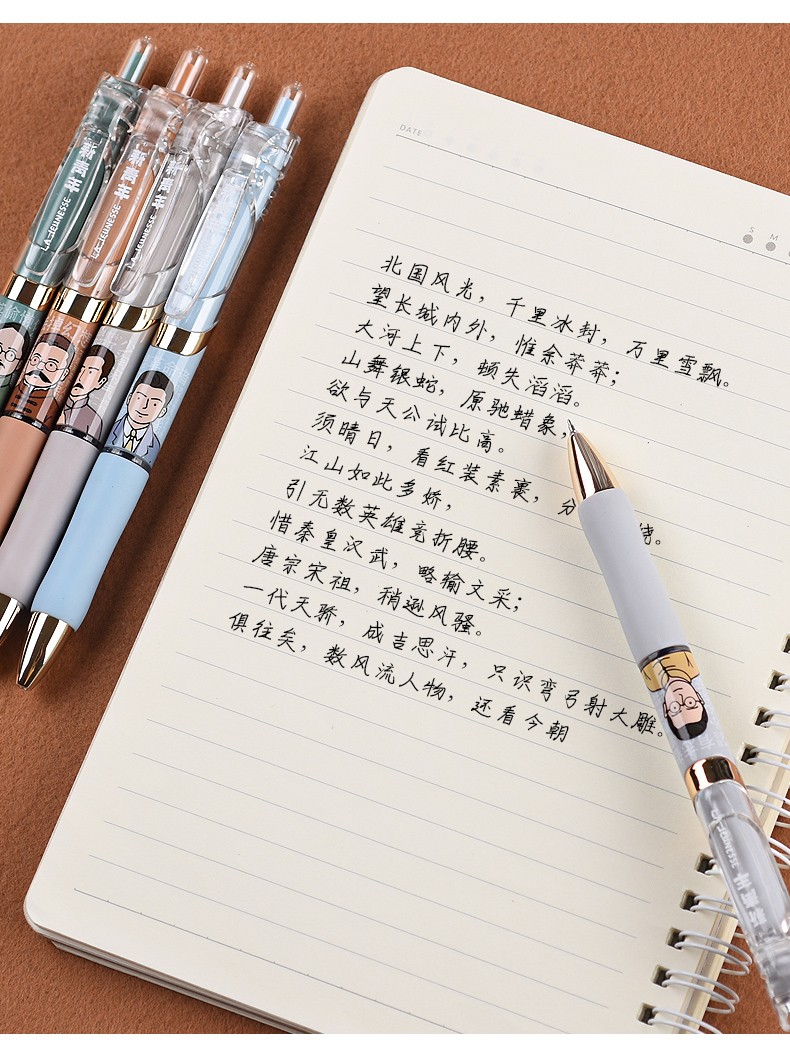 新青年
LA JEUNESSE
新青年
LA JEUNESSE
新青年
JEUNESSE
DATE
S M
北国风光，千里冰封，万里雪飘。
望长城内外，惟余莽莽；
大河上下，顿失滔滔。
山舞银蛇，原驰蜡象，
欲与天公试比高。
须晴日，看红装素裹，分 娆。
江山如此多娇，
引无数英雄竞折腰。
惜秦皇汉武，略输文采；
唐宗宋祖，稍逊风骚。
一代天骄，成吉思汗，只识弯弓射大雕。
俱往矣，数风流人物，还看今朝
LA JEUNESSE
新青年